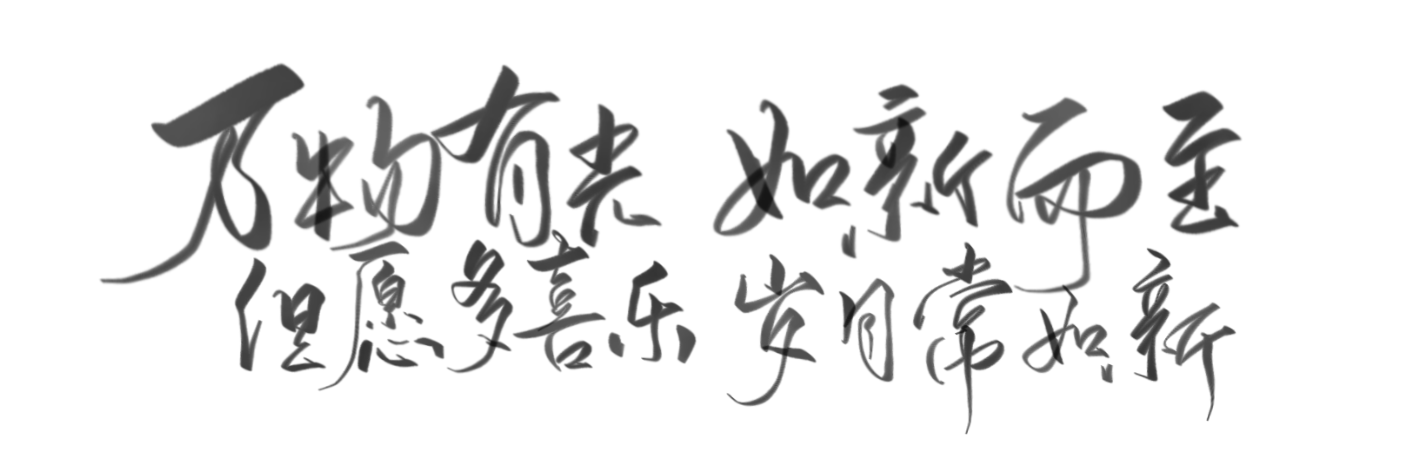 万物有光 如新而至
但愿多喜乐 岁月常如新